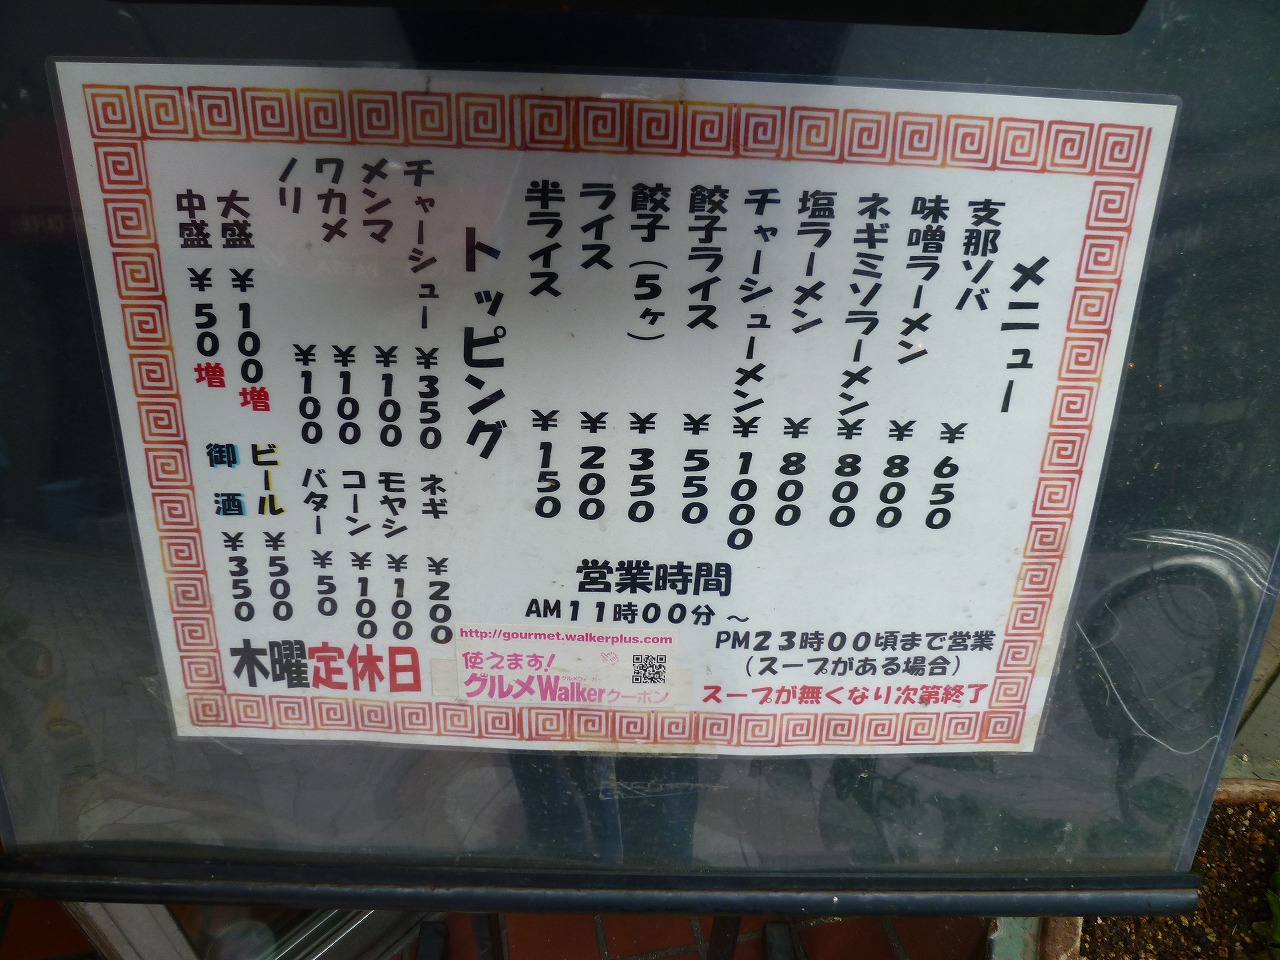 メニュー
支那ソバ ￥650
味噌ラーメン ￥800
ネギミソラーメン ￥800
塩ラーメン ￥800
チャーシューメン ￥1000
餃子ライス ￥550
餃子（5ヶ） ￥350
ライス ￥200
半ライス ￥150
トッピング
チャーシュー ￥350
メンマ ￥100
ワカメ ￥100
ノリ ￥100
ネギ ￥200
モヤシ ￥100
コーン ￥100
バター ￥50
大盛 ￥100増
中盛 ￥50増
ビール ￥500
御酒 ￥350
営業時間
AM11時00分 ～
PM23時00頃まで営業
（スープがある場合）
スープが無くなり次第終了
木曜定休日
http://gourmet.walkerplus.com
使えます!
グルメウォーカー
グルメWalkerクーポン